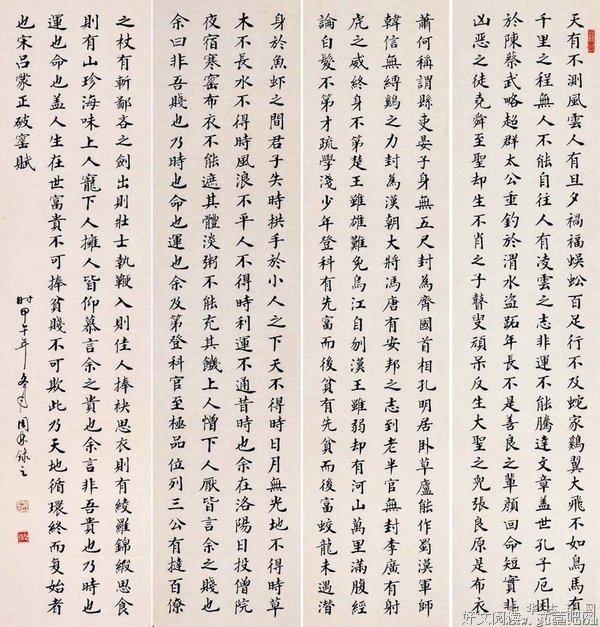 天有不測風雲人有旦夕禍福蜈蚣百足行不及蛇家鷄翼大飛不如鳥馬有
千里之程無人不能自往人有凌雲之志非運不能騰達文章盖世孔子厄困
於陳蔡武略超群太公垂釣於渭水盜跖年長不是善良之輩顔回命短實非
凶惡之徒堯舜至聖却生不肖之子瞽叟頑呆反生大聖之兒張良原是布衣
蕭何稱謂縣吏晏子身無五尺封為齊國首相孔明居卧草廬能作蜀漢軍師
韓信無縛鷄之力封為漢朝大將馮唐有安邦之志到老半官無封李廣有射
虎之威終身不第楚王雖雄難免烏江自刎漢王雖弱却有河山萬里滿腹經
論白髮不第才疏學淺少年登科有先富而後貧有先貧而後富蛟龍未遇潛
身於魚蝦之間君子失時拱手於小人之下天不得時日月無光地不得時草
木不長水不得時風浪不平人不得時利運不通昔時也余在洛陽日投僧院
夜宿寒窑布衣不能遮其體淡粥不能充其饑上人憎下人厭皆言余之賤也
余曰非吾賤也乃時也命也運也余及第登科官至極品位列三公有撻百僚
之杖有斬鄙吝之劍出則壯士執鞭入則佳人捧袂思衣則有綾羅錦緞思食
則有山珍海味上人寵下人擁人皆仰慕言余之貴也余言非吾貴也乃時也
運也命也盖人生在世富貴不可捧貧賤不可欺此乃天地循環終而复始者
也宋呂蒙正破窑賦
时甲午年冬月周錄之